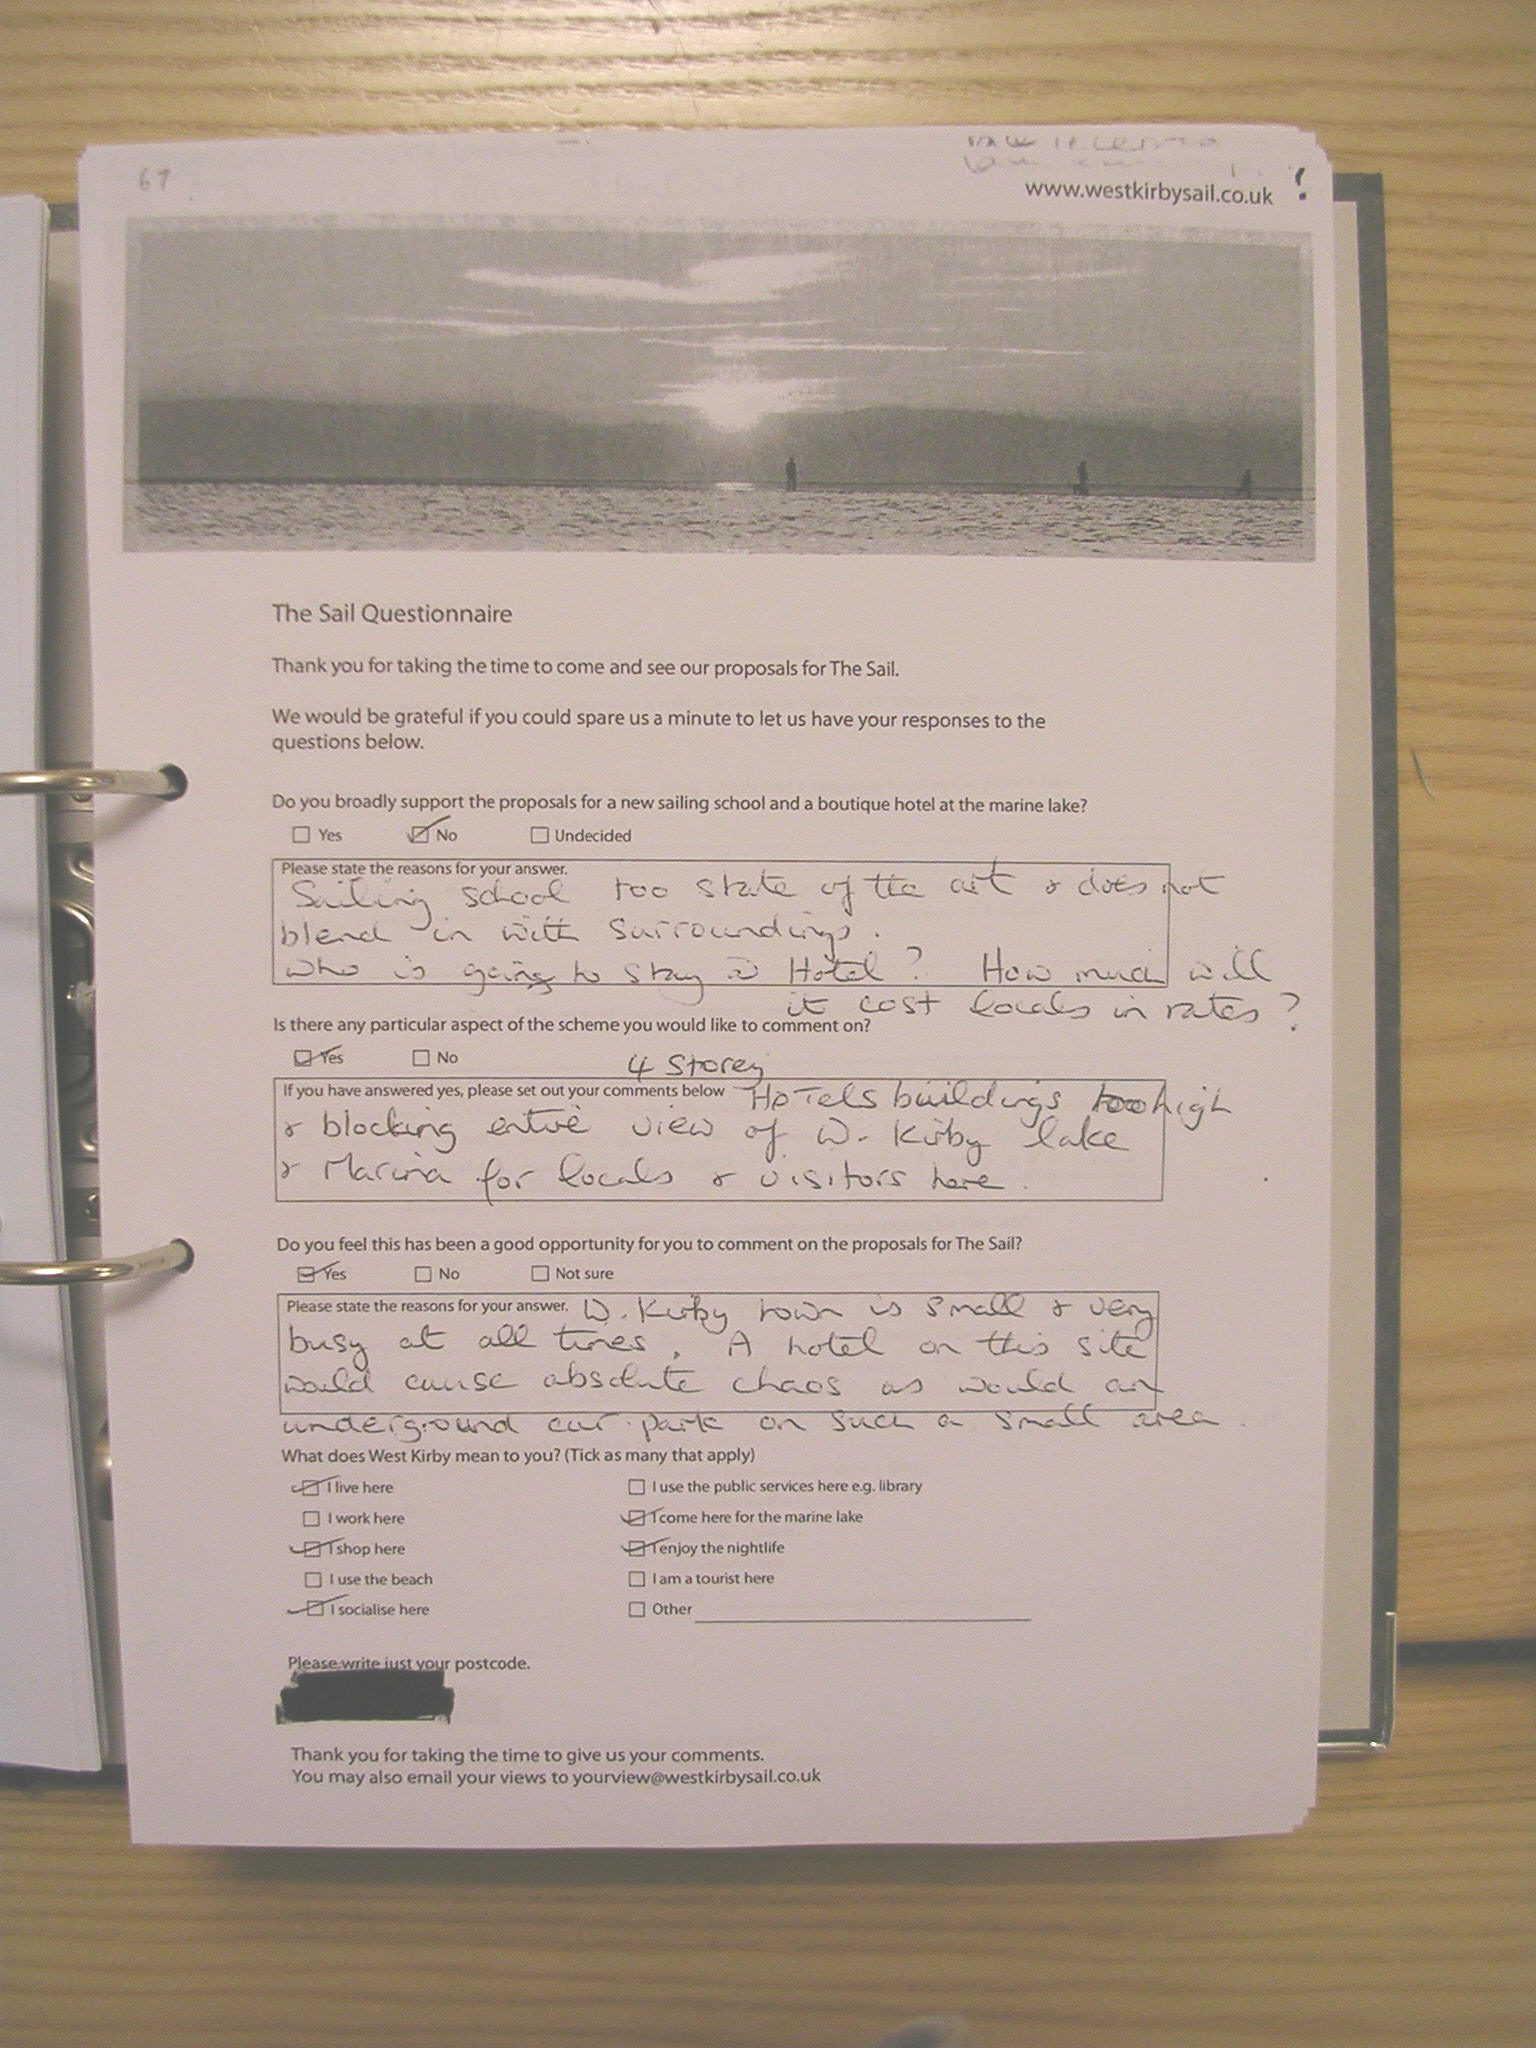 67
www.westkirbysail.co.uk
The Sail Questionnaire
Thank you for taking the time to come and see our proposals for The Sail.
We would be grateful if you could spare us a minute to let us have your responses to the
questions below.
Do you broadly support the proposals for a new sailing school and a boutique hotel at the marine lake?
Yes No Undecided
Please state the reasons for your answer.
Sailing school too state of the art & does not
blend in with surroundings.
Who is going to stay @ Hotel? How much will
it cost locals in rates?
Is there any particular aspect of the scheme you would like to comment on?
Yes No
4 Storey
If you have answered yes, please set out your comments below Hotels buildings too high
& blocking entire view of W. Kirby lake
& Marina for locals & visitors here.
Do you feel this has been a good opportunity for you to comment on the proposals for The Sail?
Yes No Not sure
Please state the reasons for your answer. W. Kirby town is small & very
busy at all times. A hotel on this site
would cause absolute chaos as would an
underground car park on such a small area.
What does West Kirby mean to you? (Tick as many that apply)
I live here I use the public services here e.g. library
I work here I come here for the marine lake
I shop here I enjoy the nightlife
I use the beach I am a tourist here
I socialise here Other
Please write just your postcode.
Thank you for taking the time to give us your comments.
You may also email your views to yourview@westkirbysail.co.uk